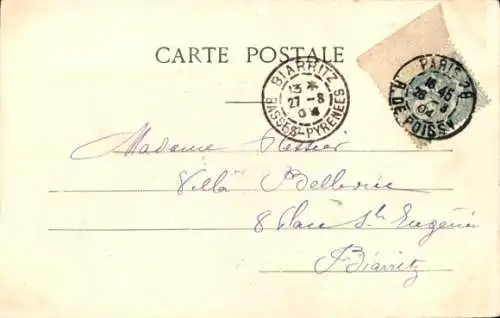 CARTE POSTALE
BIARRITZ
13 *
27 - 8
04
BASSES-PYRENEES
PARIS 28
16 45
26 8
04
R. DE POISSY
Madame
Villa Bellevue
8 Place Ste Eugénie
Biarritz